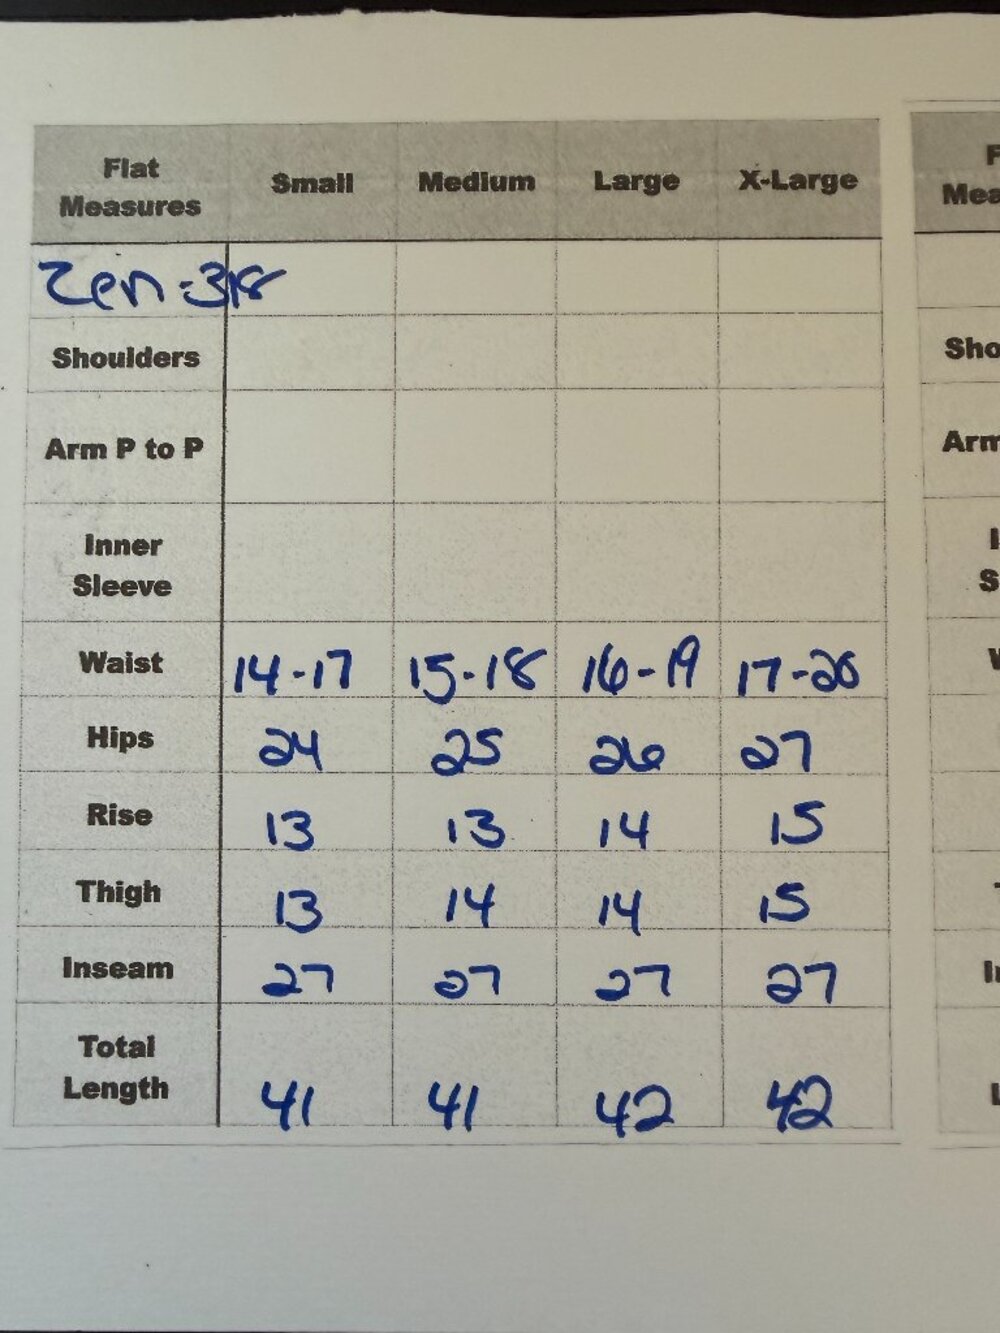 Flat Measures Small Medium Large X-Large
Zen-318
Shoulders
Arm P to P
Inner Sleeve
Waist 14-17 15-18 16-19 17-20
Hips 24 25 26 27
Rise 13 13 14 15
Thigh 13 14 14 15
Inseam 27 27 27 27
Total Length 41 41 42 42
F
Mea
Sho
Arm
I
S
W
I
L